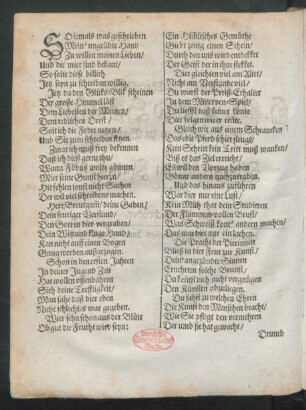 SOlemals was geschrieben
Mein' ungeübte Hand
Zu wollen meinen Lieben/
Und die mier sind bekant/
So solte diese billich
Jetz seyn zu schreiben willig.
Jetz da des Glüks-Blik scheinen
Der grosse Himmel läst
Dem Liebsten der Meinen/
Dem redlichen Orest/
Solt ich die Feder netzen/
Und Sie zum schreiben setzen.
Zwar ich muß frey bekennen
Daß ich dieß gerne thu/
Wann Föbus wolte gönnen
Mir seine Gunst hierzu
Hie fehlen sonst nicht Sachen
Der viel viel schreibens machen.
Herr Bräutigam/ deine Gaben/
Dein feuriger Verstand/
Den Gott in dier vergraben/
Dein Wissen/ kluge Hand/
Kan nicht auff einen Bogen
Gnug werden außgezogen.
Schon in den ersten Jahren
In deiner Jugend Zeit
Hat wollen offenbahren
Sich deine Treffligkeit/
Man sahe daß dier eben
Nicht schlechtes war gegeben.
Wier sehn schon aus der Blüht
Ob gut die Frucht wird seyn:
Ein Himlisches Gemüthe
Giebt zeitig einen Schein/
Durch den uns wird entdekket
Der Geist der in ihm stekket.
Dier gleichten viel am Alter/
Nicht am Verstande viel/
Du warst der Preiß-Erhalter
In dem Minerven-Spiel/
Du liesest daß keiner könte
Dier folgen wie er rente.
Gleich wie auß einem Schrancken
Das edle Pferd hinspringt/
Kein Schritt kein Tritt muß wancken/
Biß es das Ziel erreicht/
Es wil den Vorzug haben
Können andern nachtraben.
Und das hinaus zuführen
War dier nur eine Lust/
Kein Müh that dein Studieren
Der Flammen-vollen Brust/
Was Schweiß kont' andern machen/
Das war dier nur ein lachen.
Die Pracht der Pierinnen
Bließ in dier Feur zur Kunst/
Dein' angezündte Sinnen
Ereyferten solche Brunst/
Du kontst dich nicht vergnügen
Den Künsten obzuliegen.
Du sahst zu welchen Ehren
Die Kunst den Menschen bracht/
Wie Sie pflegt den vermehren
Der und sie hat gewacht/
Drumb